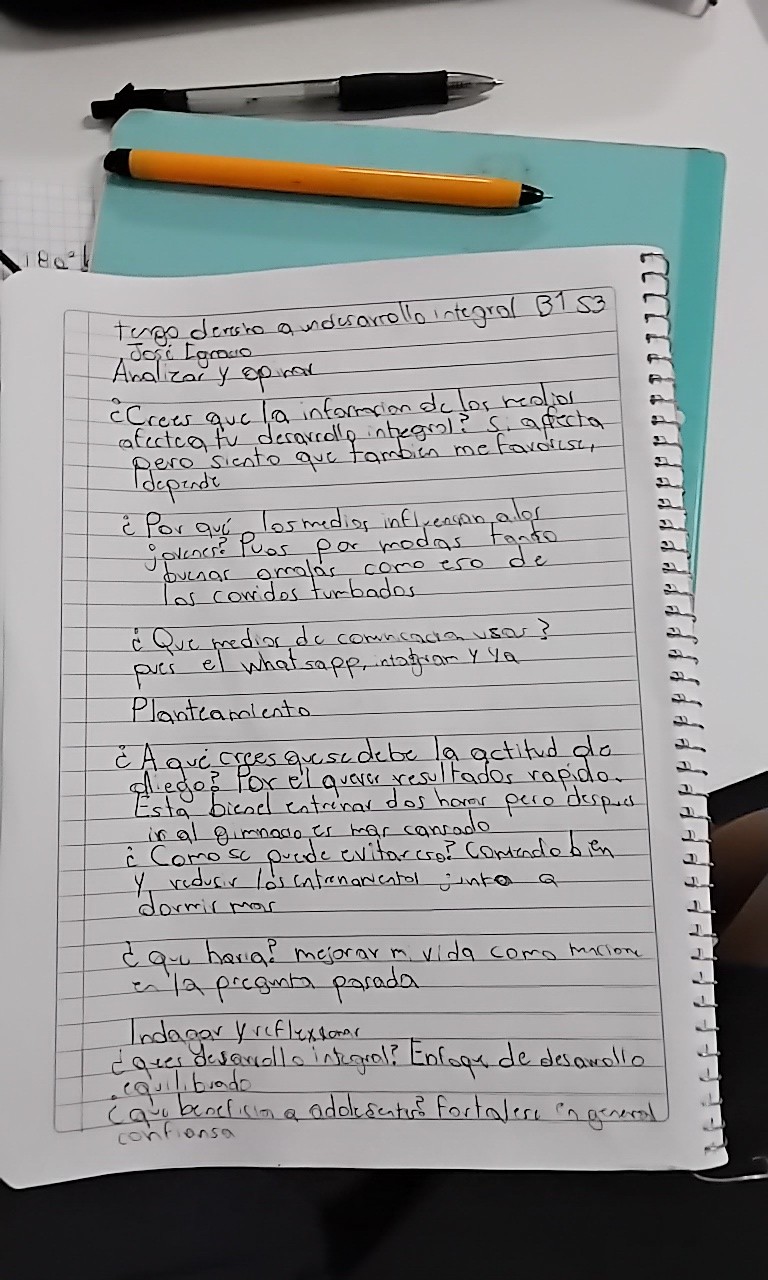 180°
tengo derecho a un desarrollo integral B1 S3
José Ignacio
Analizar y opinar
¿Crees que la informacion de los medios
afectca tu desarrollo integral? Si affecta
pero siento que tambien me favorese,
depende
¿Por qué los medios influencian a los
jovenes? Puos por modas tanto
buenas o malas como eso de
los corridos tumbados
¿Que medios de comunicacion usas?
pues el whatsapp, intagram y ya
Planteamiento
¿A qué crees que se debe la actitud de
diego? Por el querer resultados rapido.
Esta bien el entrenar dos horas pero despues
ir al gimnacio es mas cansado
¿Como se puede evitar eso? Comiendo bien
y reducir los entrenamientos junto a
dormir mas
¿que haria? mejorar mi vida como mencione
en la pregunta pasada
Indagar y reflexionar
¿ques desarrollo integral? Enfoque de desarrollo
equilibrado
¿que beneficia a adolesentes? fortalese en general
confiansa